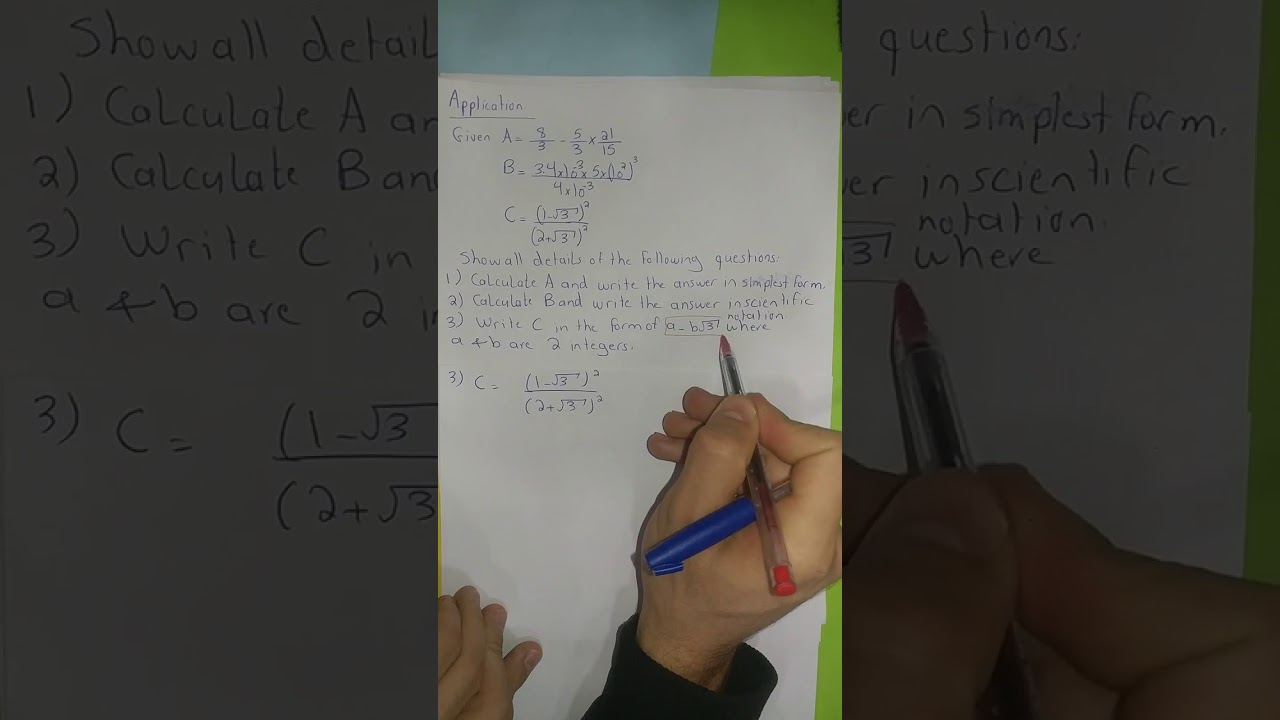 Application
Given A = 8/3 - 5/3 × 21/15
B = 3.4×10⁻³ × 5×(10²)³ / 4×10⁻³
C = (1-√3)² / (2+√3)²
Show all details of the following questions:
1) Calculate A and write the answer in simplest form.
2) Calculate B and write the answer in scientific notation.
3) Write C in the form of a - b√3 where
a & b are 2 integers.
3) C = (1-√3)² / (2+√3)²